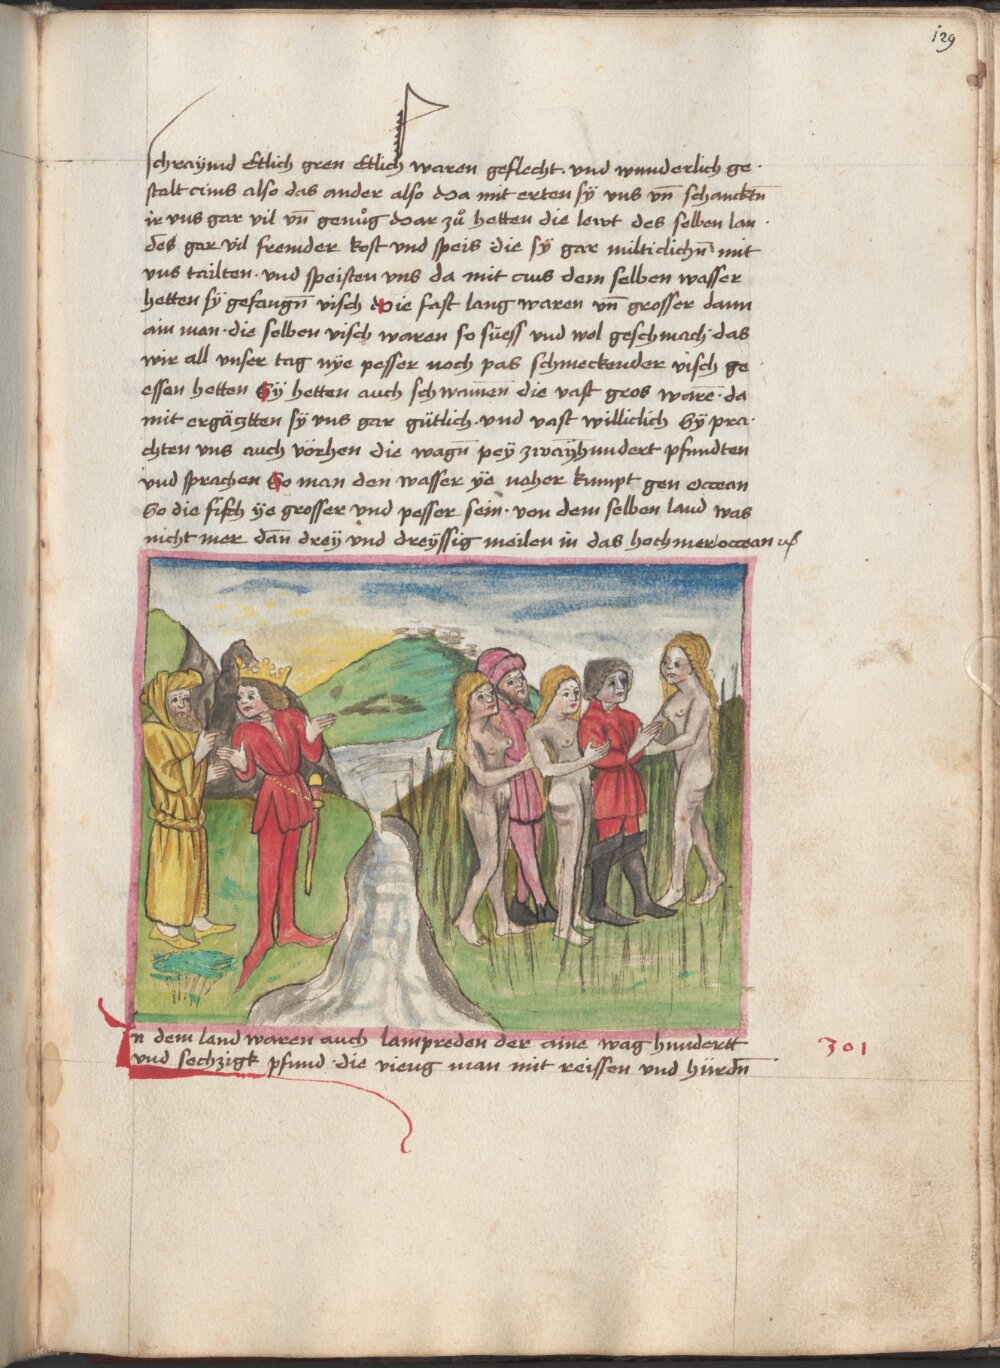 129
schraÿmd Etlich gren Etlich waren geflecht · vnd wunderlich ge ·
stalt ains also das ander also Da mit erten sÿ vns vn̄ schancktn̄
ir vns gar vil vn̄ genůg Dar zů hetten die lewt des selben lan ·
des gar vil fremder kost vnd speis die sÿ gar milticlichn̄ mit
vns tailten · vnd speisten vns da mit aus dem selben wasser
hetten sÿ gefangn̄ visch Die fast lang waren vn̄ grosser dann
ain man · die selben visch waren so süess vnd wol geschmach · das
wir all vnser tag nÿe pesser noch pas schmeckender visch ge
essen hetten Sÿ hetten auch schwam̄en die vast gros ware̅ · da
mit ergäcztten sÿ vns gar gütlich · vnd vast williclich Sÿ pra ·
chten vns auch vörhen die wagn̄ peÿ zwaÿhundert pfundten
vnd sprachen So man den wasser ÿe naher kumpt gen occean
So die fisch ÿe grosser vnd pesser sein · von dem selben land was
nicht mer dan̄ dreÿ vnd dreÿssig meilen in das hochmer occean
In dem land waren auch lampreden der aine wag hundertt
vnd sechzigk pfund · die vieng man mit reissen vnd hürdn̄
301